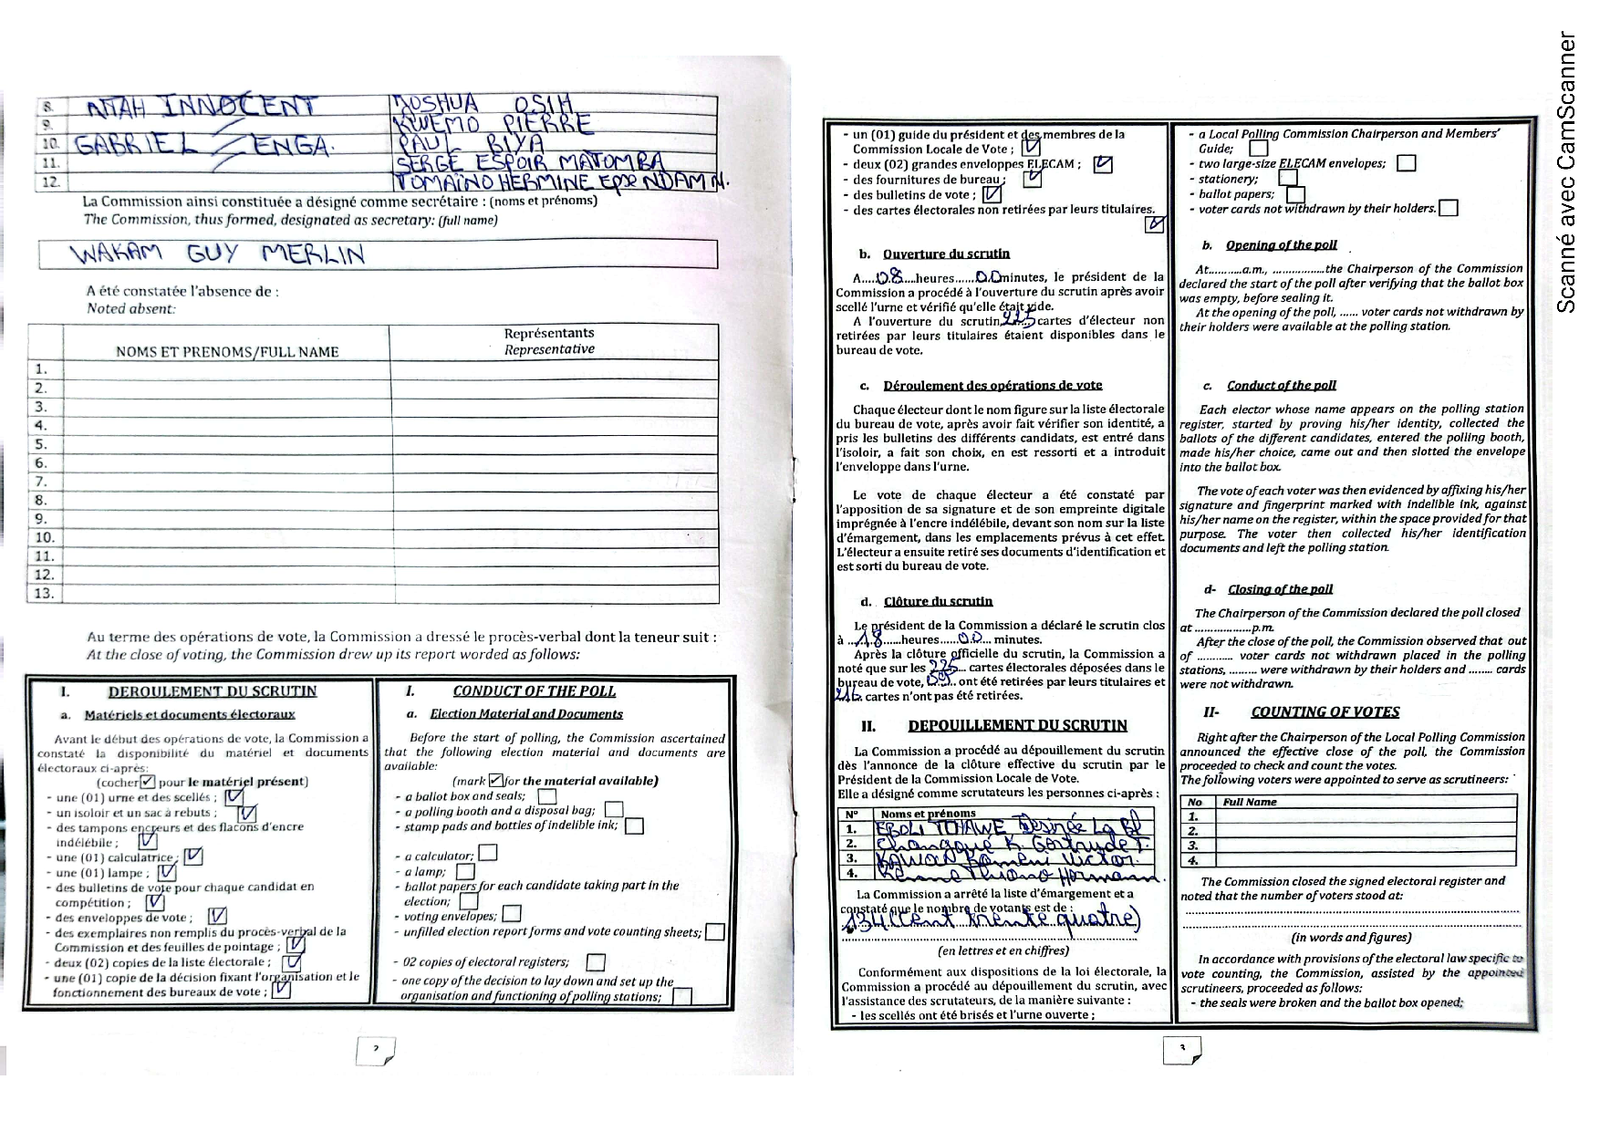 8. ATTAH INNOCENT JOSHUA OSIH
9. KWEMO PIERRE
10. GABRIEL ZENGA. PAUL BIYA
11. SERGE ESPOIR MATOMBA
12. TOMAÏNO HERMINE Epse NDAM N.
La Commission ainsi constituée a désigné comme secrétaire : (noms et prénoms)
The Commission, thus formed, designated as secretary: (full name)
WAKAM GUY MERLIN
A été constatée l'absence de :
Noted absent:
NOMS ET PRENOMS/FULL NAME
Représentants
Representative
1.
2.
3.
4.
5.
6.
7.
8.
9.
10.
11.
12.
13.
Au terme des opérations de vote, la Commission a dressé le procès-verbal dont la teneur suit :
At the close of voting, the Commission drew up its report worded as follows:
I. DEROULEMENT DU SCRUTIN
a. Matériels et documents électoraux
Avant le début des opérations de vote, la Commission a
constaté la disponibilité du matériel et documents
électoraux ci-après:
(cocher ☑ pour le matériel présent)
- une (01) urne et des scellés ; ☑
- un isoloir et un sac à rebuts ; ☑
- des tampons encreurs et des flacons d'encre
indélébile ; ☑
- une (01) calculatrice ; ☑
- une (01) lampe ; ☑
- des bulletins de vote pour chaque candidat en
compétition ; ☑
- des enveloppes de vote ; ☑
- des exemplaires non remplis du procès-verbal de la
Commission et des feuilles de pointage ; ☑
- deux (02) copies de la liste électorale ; ☑
- une (01) copie de la décision fixant l'organisation et le
fonctionnement des bureaux de vote ; ☑
I. CONDUCT OF THE POLL
a. Election Material and Documents
Before the start of polling, the Commission ascertained
that the following election material and documents are
available:
(mark ☑ for the material available)
- a ballot box and seals; ☐
- a polling booth and a disposal bag; ☐
- stamp pads and bottles of indelible ink; ☐
- a calculator; ☐
- a lamp; ☐
- ballot papers for each candidate taking part in the
election; ☐
- voting envelopes; ☐
- unfilled election report forms and vote counting sheets; ☐
- 02 copies of electoral registers; ☐
- one copy of the decision to lay down and set up the
organisation and functioning of polling stations; ☐
2
- un (01) guide du président et des membres de la
Commission Locale de Vote ; ☑
- deux (02) grandes enveloppes ELECAM ; ☑
- des fournitures de bureau ; ☑
- des bulletins de vote ; ☑
- des cartes électorales non retirées par leurs titulaires.
☑
b. Ouverture du scrutin
A....08....heures.....00minutes, le président de la
Commission a procédé à l'ouverture du scrutin après avoir
scellé l'urne et vérifié qu'elle était vide.
A l'ouverture du scrutin 225 cartes d'électeur non
retirées par leurs titulaires étaient disponibles dans le
bureau de vote.
c. Déroulement des opérations de vote
Chaque électeur dont le nom figure sur la liste électorale
du bureau de vote, après avoir fait vérifier son identité, a
pris les bulletins des différents candidats, est entré dans
l'isoloir, a fait son choix, en est ressorti et a introduit
l'enveloppe dans l'urne.
Le vote de chaque électeur a été constaté par
l'apposition de sa signature et de son empreinte digitale
imprégnée à l'encre indélébile, devant son nom sur la liste
d'émargement, dans les emplacements prévus à cet effet.
L'électeur a ensuite retiré ses documents d'identification et
est sorti du bureau de vote.
d. Clôture du scrutin
Le président de la Commission a déclaré le scrutin clos
à ..18.....heures.....00... minutes.
Après la clôture officielle du scrutin, la Commission a
noté que sur les 225... cartes électorales déposées dans le
bureau de vote, ont été retirées par leurs titulaires et
216 cartes n'ont pas été retirées.
II. DEPOUILLEMENT DU SCRUTIN
La Commission a procédé au dépouillement du scrutin
dès l'annonce de la clôture effective du scrutin par le
Président de la Commission Locale de Vote.
Elle a désigné comme scrutateurs les personnes ci-après :
N° Noms et prénoms
1. EBOLI TCHAWE Désirée La
2. K. Gertrude T.
3. KAWAN Kameni Victor
4. Hermann
La Commission a arrêté la liste d'émargement et a
constaté que le nombre de votants est de :
134 (Cent trente quatre)
(en lettres et en chiffres)
Conformément aux dispositions de la loi électorale, la
Commission a procédé au dépouillement du scrutin, avec
l'assistance des scrutateurs, de la manière suivante :
- les scellés ont été brisés et l'urne ouverte ;
- a Local Polling Commission Chairperson and Members'
Guide; ☐
- two large-size ELECAM envelopes; ☐
- stationery; ☐
- ballot papers; ☐
- voter cards not withdrawn by their holders. ☐
b. Opening of the poll
At...........a.m., ..................the Chairperson of the Commission
declared the start of the poll after verifying that the ballot box
was empty, before sealing it.
At the opening of the poll, ...... voter cards not withdrawn by
their holders were available at the polling station.
c. Conduct of the poll
Each elector whose name appears on the polling station
register, started by proving his/her identity, collected the
ballots of the different candidates, entered the polling booth,
made his/her choice, came out and then slotted the envelope
into the ballot box.
The vote of each voter was then evidenced by affixing his/her
signature and fingerprint marked with indelible ink, against
his/her name on the register, within the space provided for that
purpose. The voter then collected his/her identification
documents and left the polling station.
d- Closing of the poll
The Chairperson of the Commission declared the poll closed
at ...................p.m.
After the close of the poll, the Commission observed that out
of ............ voter cards not withdrawn placed in the polling
stations, ........ were withdrawn by their holders and ........ cards
were not withdrawn.
II- COUNTING OF VOTES
Right after the Chairperson of the Local Polling Commission
announced the effective close of the poll, the Commission
proceeded to check and count the votes.
The following voters were appointed to serve as scrutineers:
No Full Name
1.
2.
3.
4.
The Commission closed the signed electoral register and
noted that the number of voters stood at:
(in words and figures)
In accordance with provisions of the electoral law specific to
vote counting, the Commission, assisted by the appointed
scrutineers, proceeded as follows:
- the seals were broken and the ballot box opened;
3
Scanné avec CamScanner